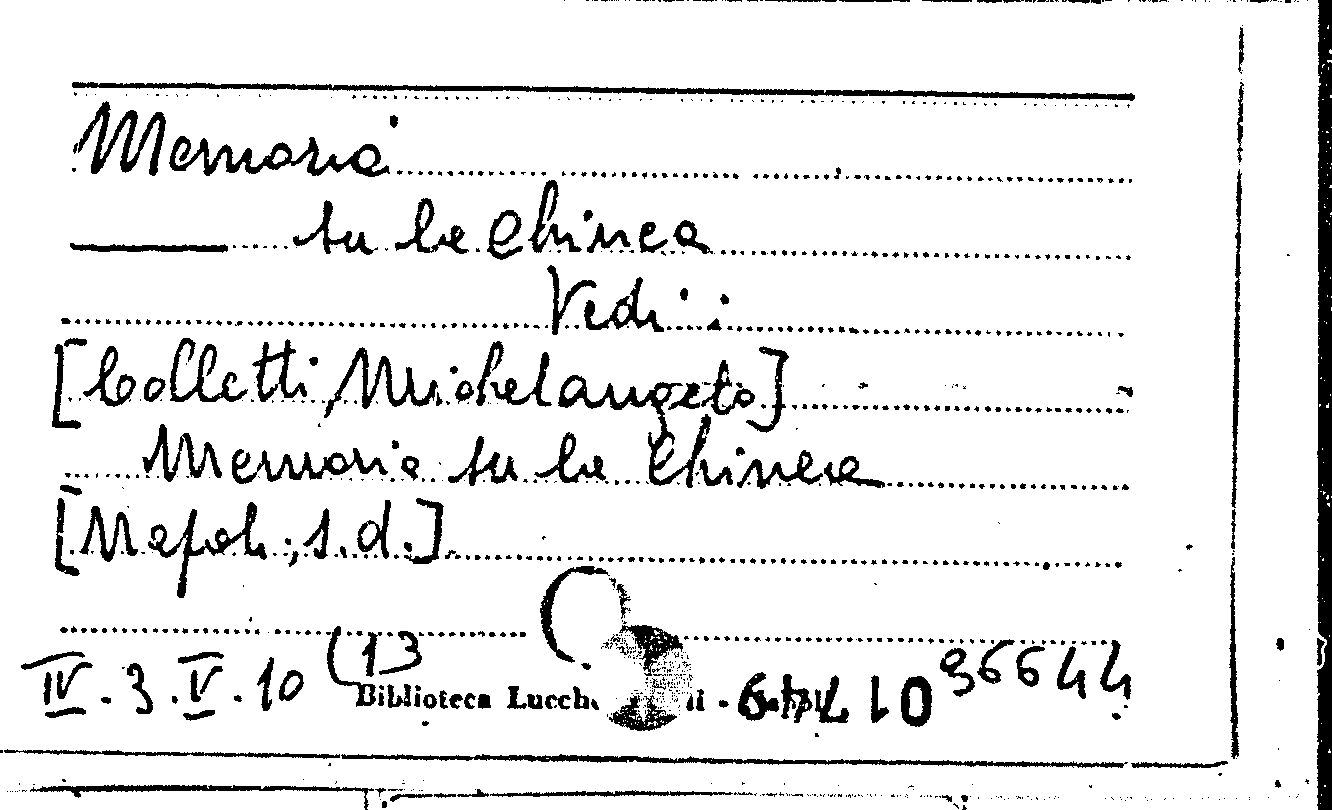 Memoria
——— su la Chinea
Vedi:
[Colletti, Michelangelo]
Memoria su la Chinea
[Napoli, s.d.]
IV. 3. V. 10 (13
Biblioteca 96644